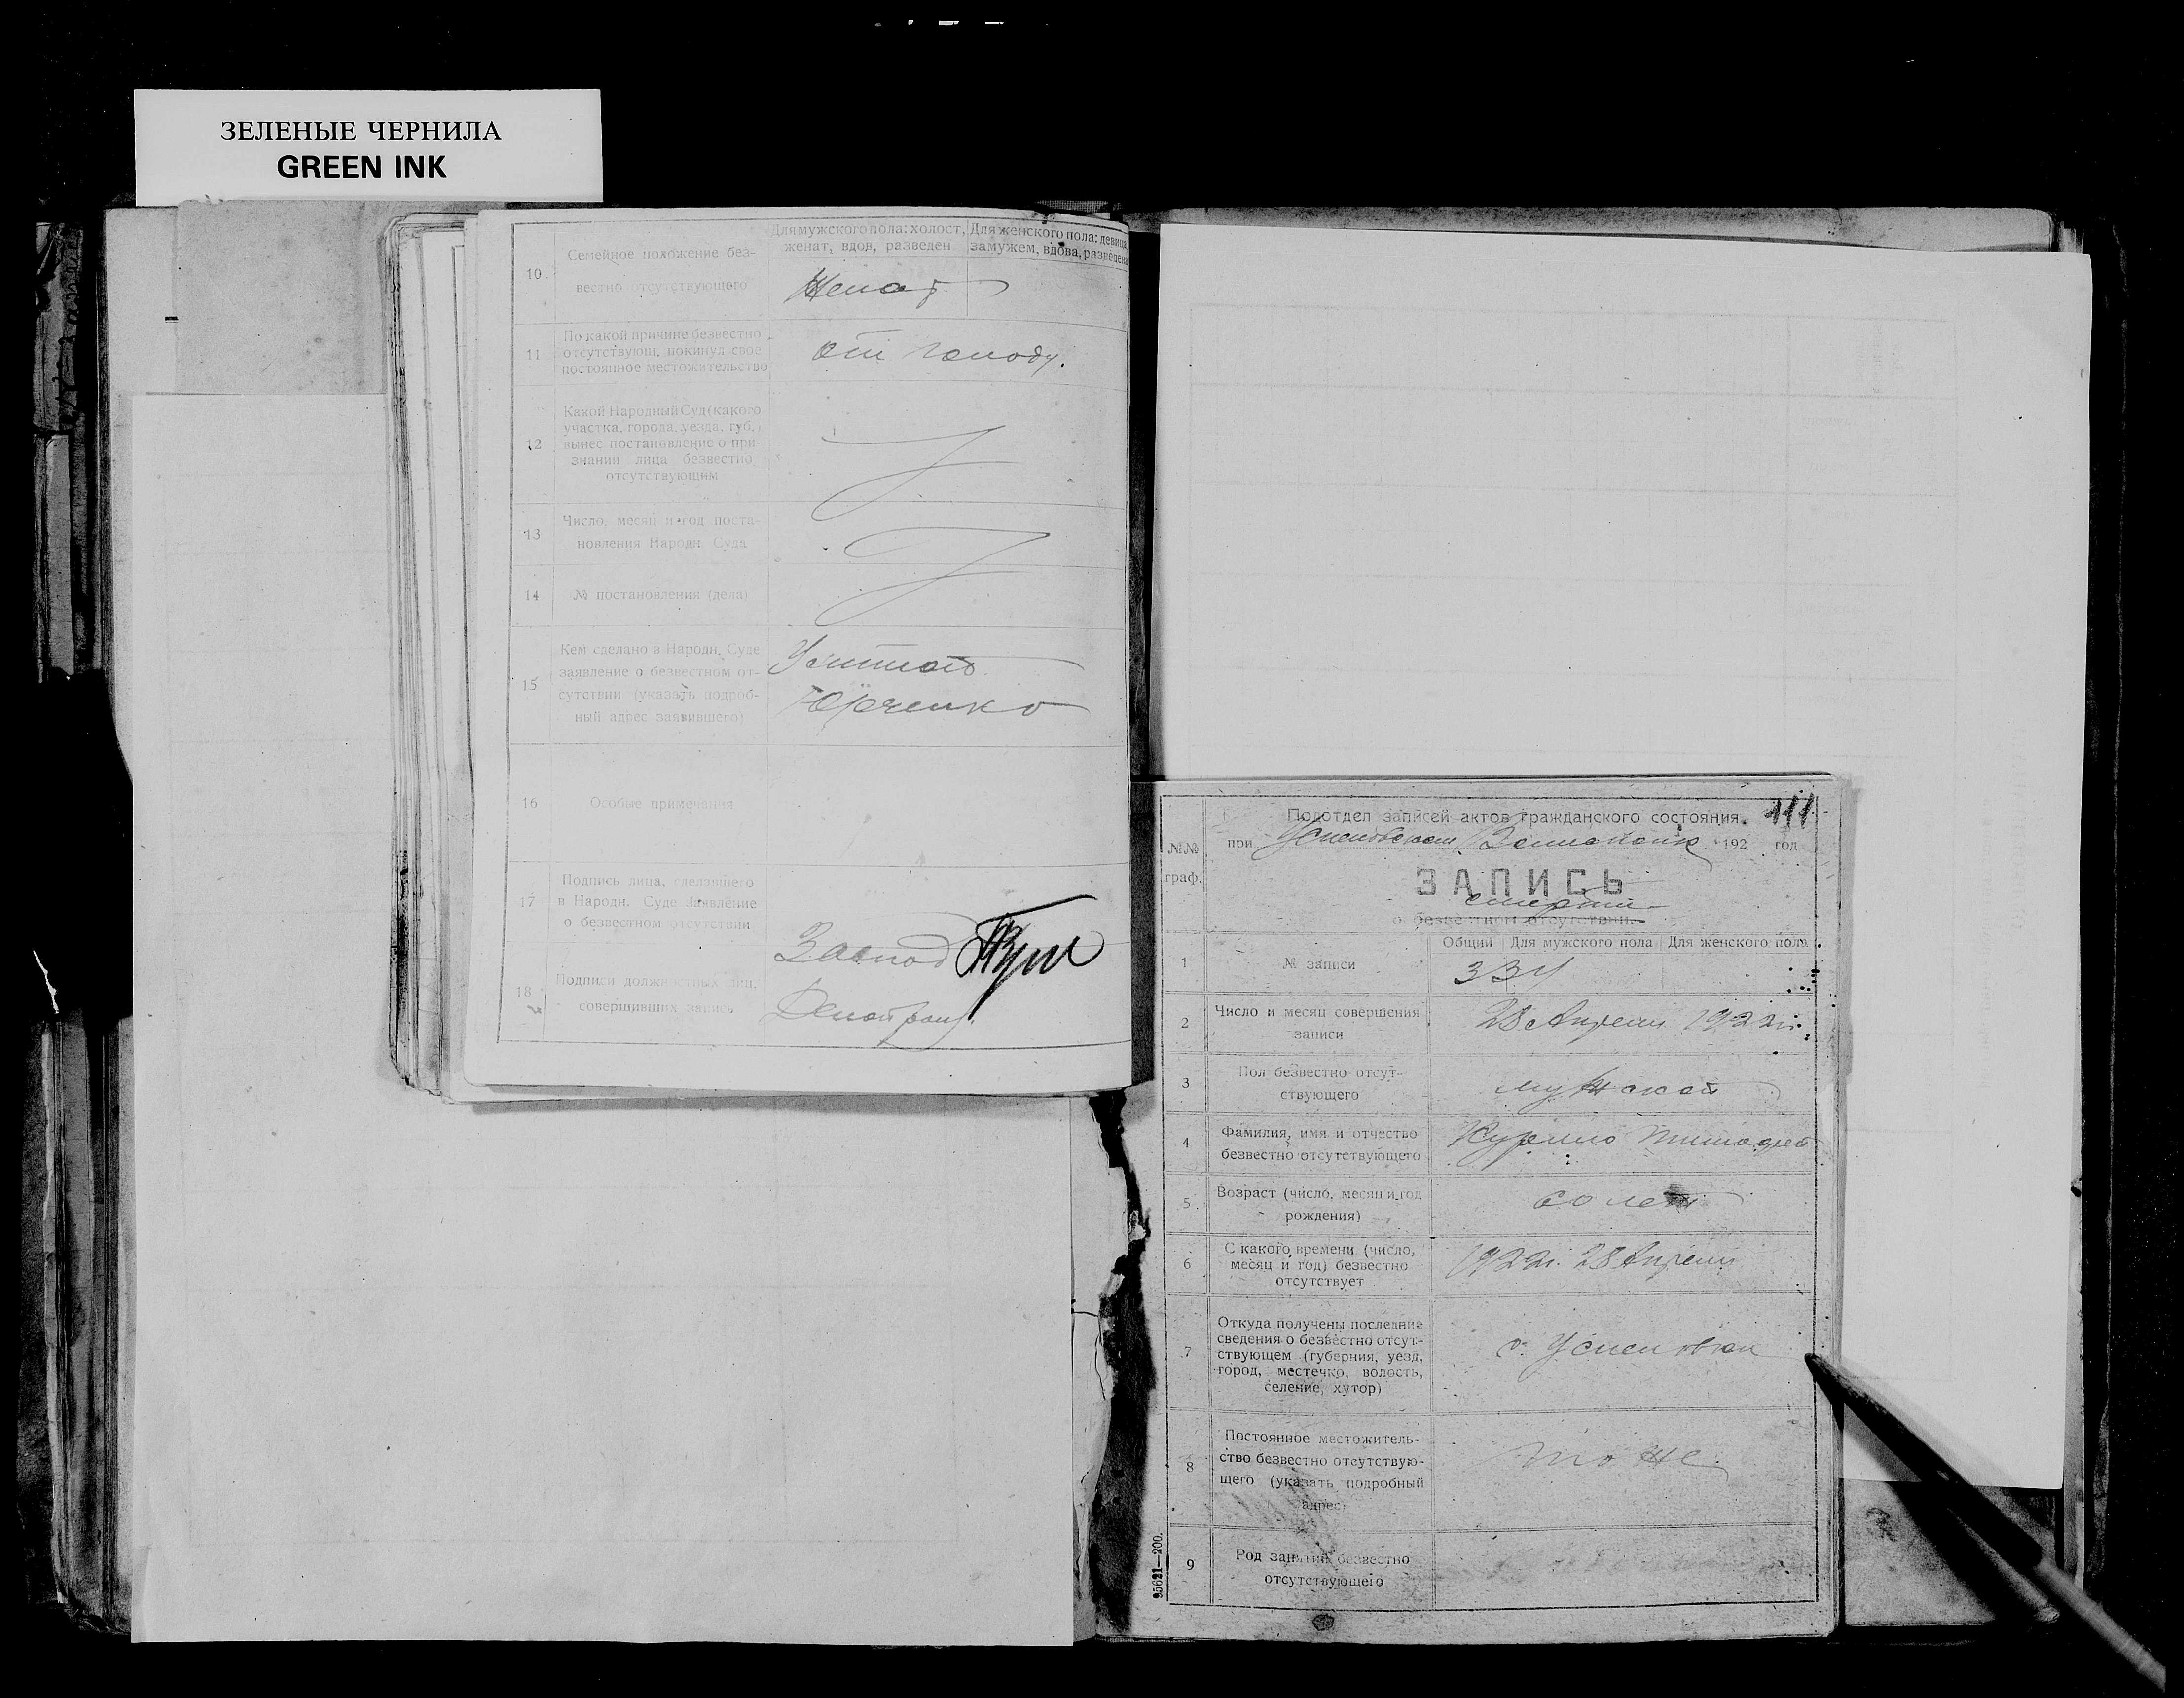 ЗЕЛЕНЫЕ ЧЕРНИЛА
GREEN INK
10
Семейное положение без-
вестно отсутствующего
Для мужского пола: холост,
женат, вдов, разведен
Для женского пола: девица,
замужем, вдова, разведена
Женат
11
По какой причине безвестно
отсутствующ. покинул свое
постоянное местожительство
От голоду.
12
Какой Народный Суд (какого
участка, города, уезда, губ.)
вынес постановление о при-
знании лица безвестно
отсутствующим
13
Число, месяц и год поста-
новления Народн. Суда
14
№ постановления (дела)
15
Кем сделано в Народн. Суде
заявление о безвестном от-
сутствии (указать подроб-
ный адрес заявившего)
Юрченко
16
Особые примечания
17
Подпись лица, сделавшего
в Народн. Суде заявление
о безвестном отсутствии
18
Подписи должностных лиц,
совершивших запись
Завпод
Делопроиз.
111
Подотдел записей актов гражданского состояния.
№№
граф.
при Успеновском 192 год
ЗАПИСЬ
смерти
о безвестном отсутствии.
Общий
Для мужского пола
Для женского пола
1
№ записи
2
Число и месяц совершения
записи
28 Апреля 1922 г.
3
Пол безвестно отсут-
ствующего
мужской
4
Фамилия, имя и отчество
безвестно отсутствующего
Курило Тимофей
5
Возраст (число, месяц и год
рождения)
60 лет
6
С какого времени (число,
месяц и год) безвестно
отсутствует
1922 г. 28 Апреля
7
Откуда получены последние
сведения о безвестно отсут-
ствующем (губерния, уезд,
город, местечко, волость,
селение, хутор)
с. Успеновка
8
Постоянное местожитель-
ство безвестно отсутствую-
щего (указать подробный
адрес)
то же
9
Род занятий безвестно
отсутствующего
95621—200.